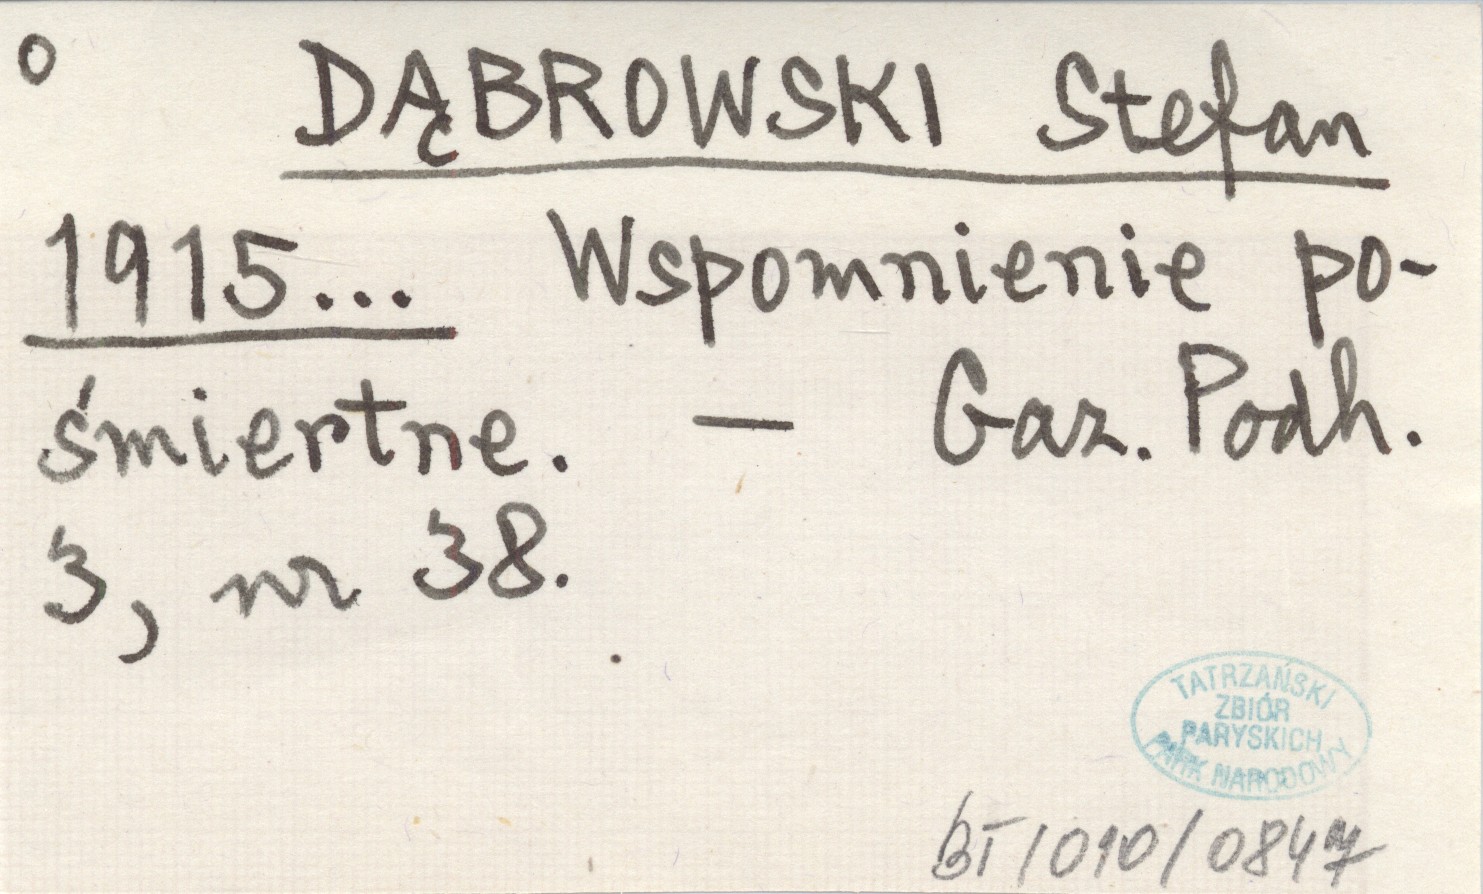 o DĄBROWSKI Stefan
1915... Wspomnienie po-
śmiertne. — Gaz. Podh.
3, nr 38.
TATRZAŃSKI
ZBIÓR
PARYSKICH
PARK NARODOWY
BT/010/0847